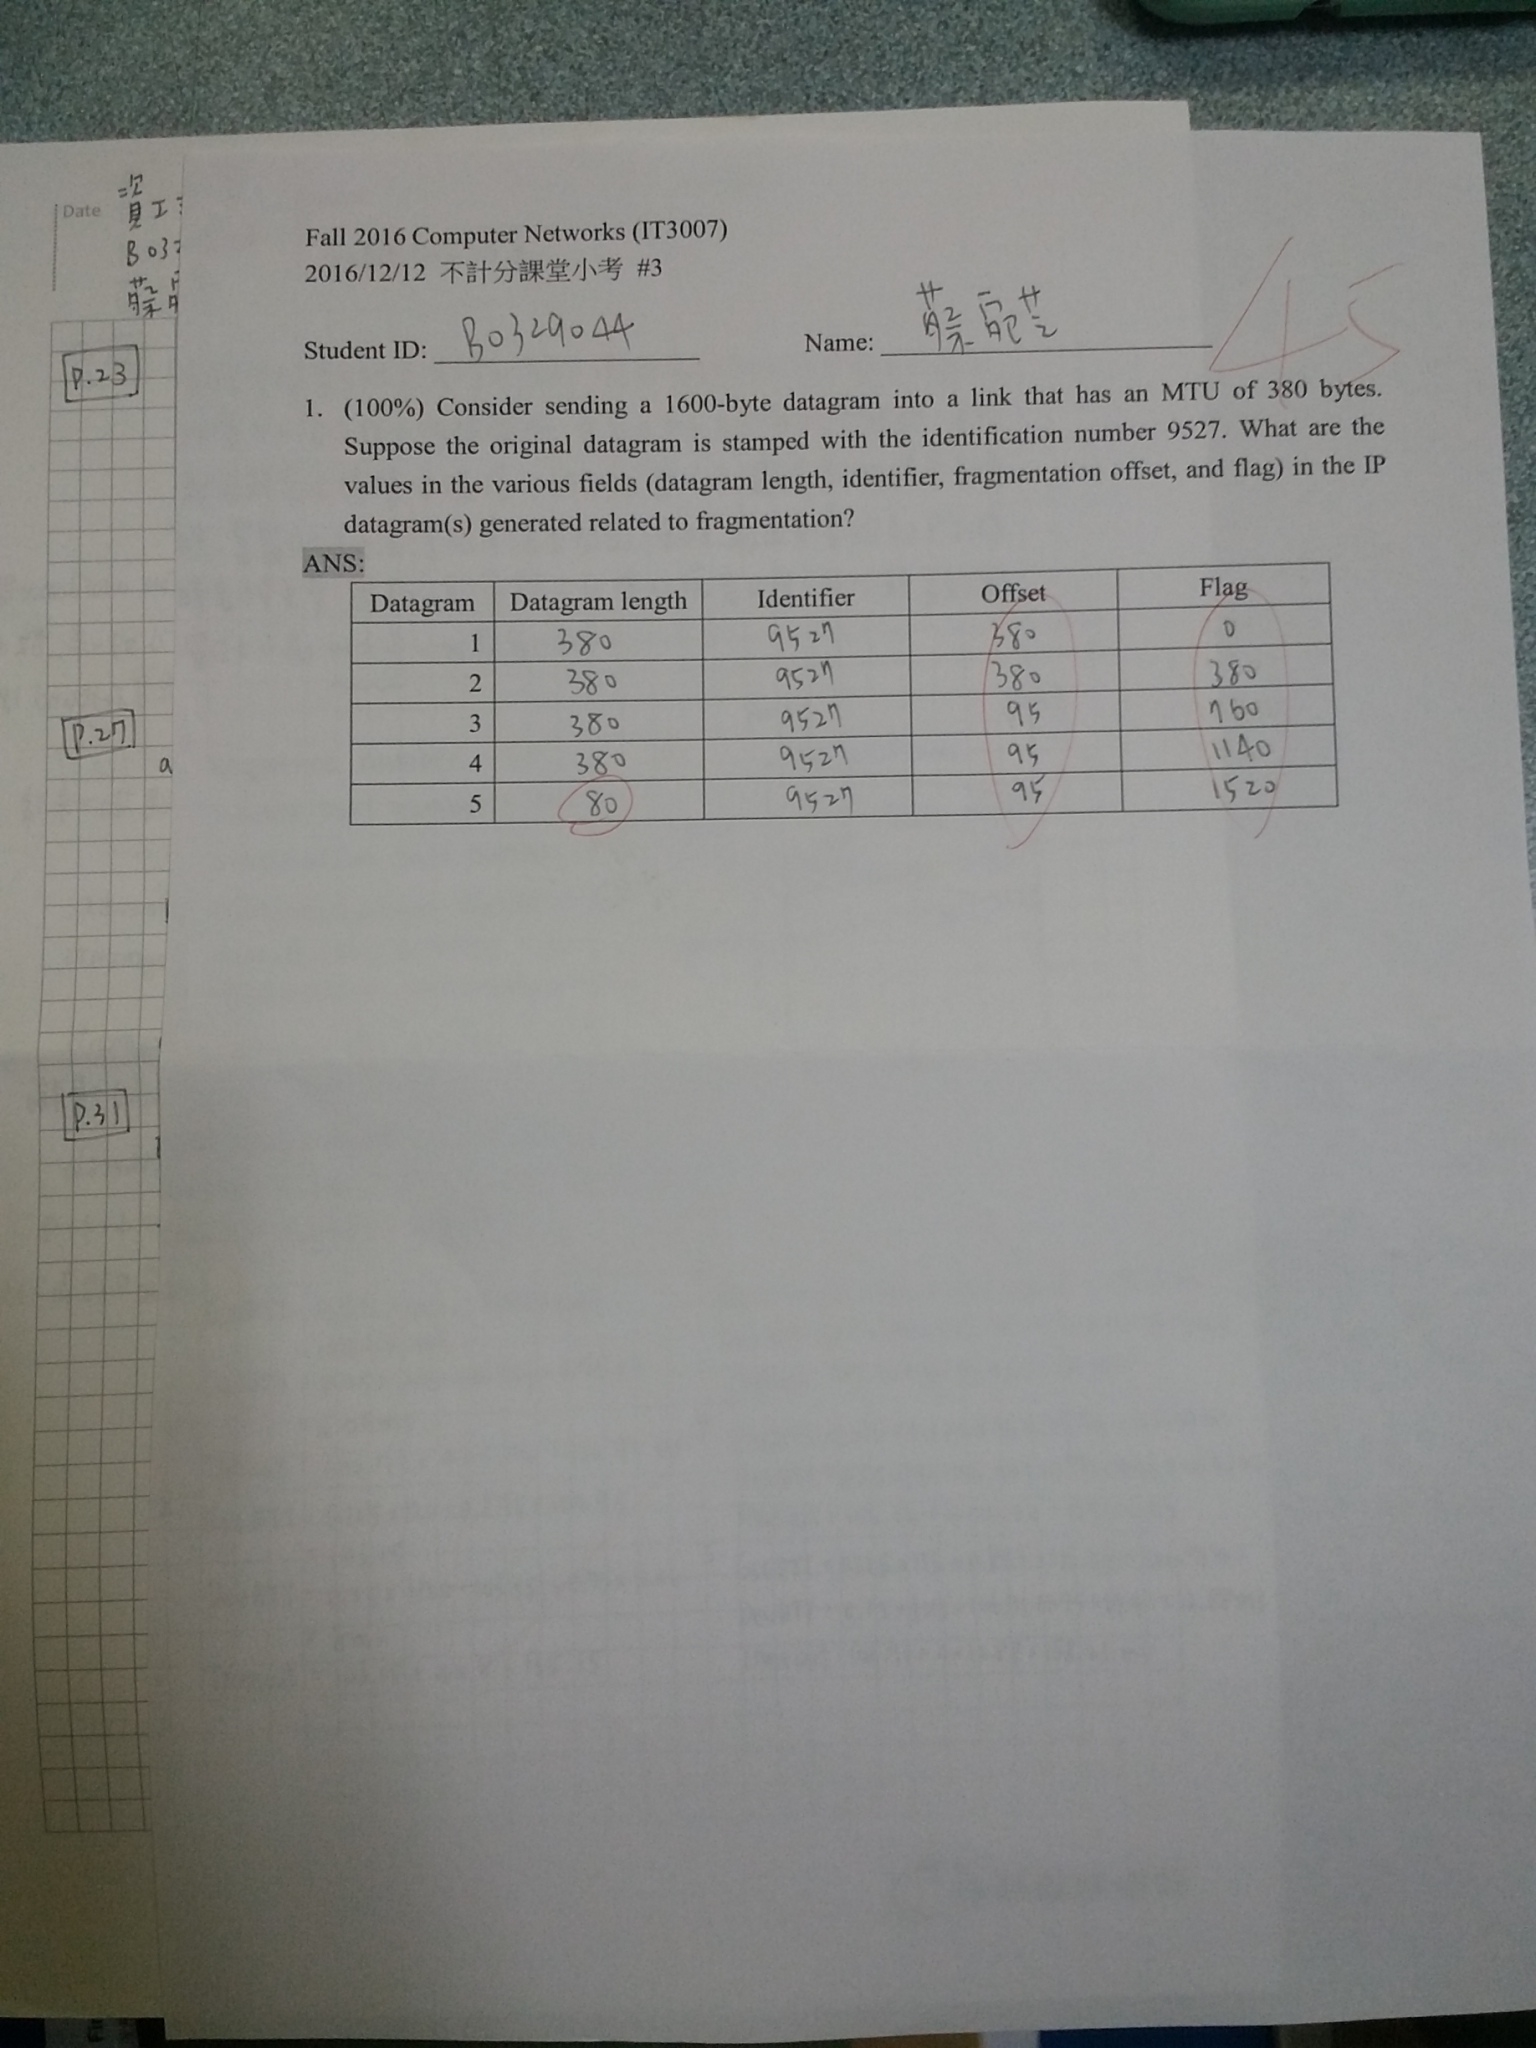 Date
資工三
B032
P.23
P.27
a
P.31
Fall 2016 Computer Networks (IT3007)
2016/12/12 不計分課堂小考 #3
45
Student ID: B0329044 Name:
1. (100%) Consider sending a 1600-byte datagram into a link that has an MTU of 380 bytes.
Suppose the original datagram is stamped with the identification number 9527. What are the
values in the various fields (datagram length, identifier, fragmentation offset, and flag) in the IP
datagram(s) generated related to fragmentation?
ANS:
Datagram Datagram length Identifier Offset Flag
1 380 9527 380 0
2 380 9527 380 380
3 380 9527 95 760
4 380 9527 95 1140
5 80 9527 95 1520